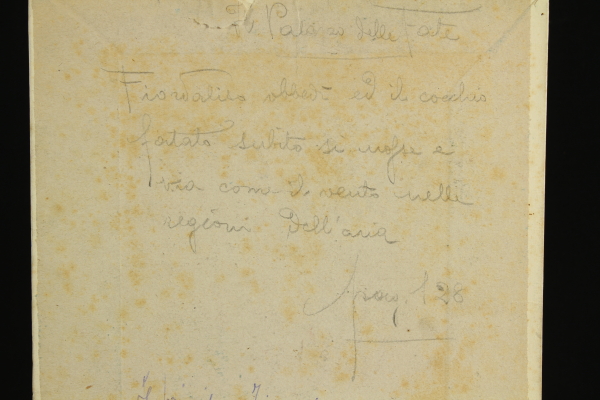 Il Palazzo delle Fate
Fiordaliso obbedì ed il cocchio
fatato subito si mosse e
via come il vento nelle
regioni dell'aria
pag. 128